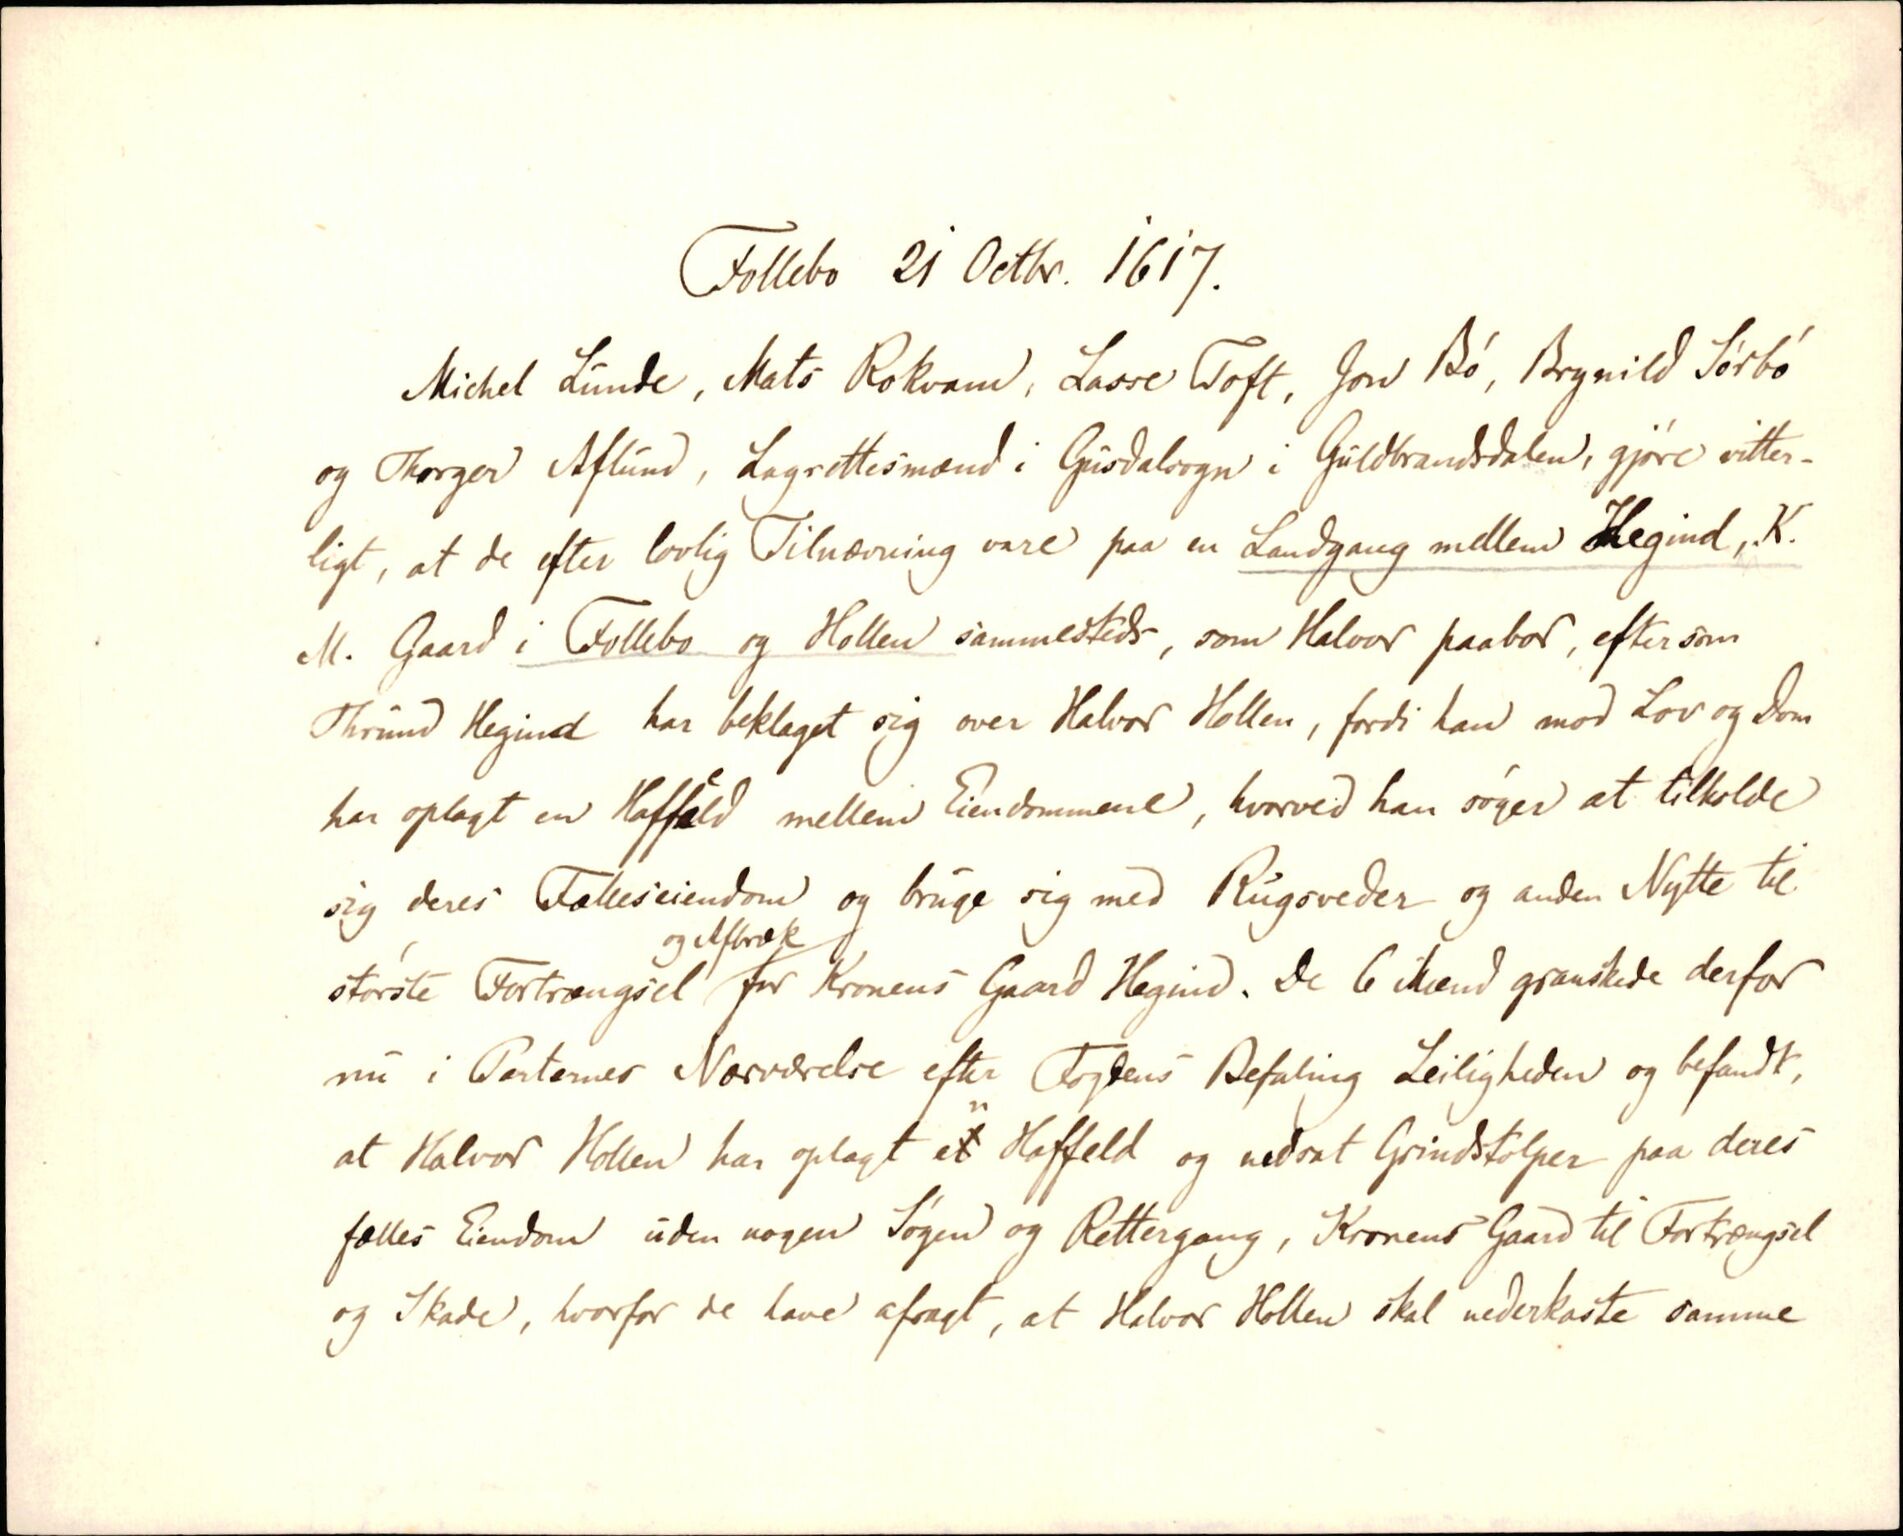 Follebo 21 Octbr. 1617.
Michel Lunde, Mats Rokvam, Lasse Toft, Jon Bó, Brynild Sórbó
og Thorger Aflund, Lagrettesmænd i Gusdalsogn i Guldbrandsdalen, gjóre vitter-
ligt, at de efter lovlig Tilnævning vare paa en Landgang mellem Hegind, K.
M. Gaard i Follebo og Hollen sammesteds, som Halvor paabor, eftersom
Thrund Hegind har beklaget sig over Halvor Hollen, fordi han mod Lov og Dom
har oplagt en Haffeld mellem Eiendommene, hvorved han sóger at tilholde
sig deres Fælleseiendom og bruge sig med Rugsveder og anden Nytte til
stórste Fortrængsel og Afbræk for Kronens Gaard Hegind. De 6 Mænd granskede derfor
nu i Parternes Nærværelse efter Fogdens Befaling Leiligheden og befandt,
at Halvor Hollen har oplagt en Haffeld og nedsat Grindstolper paa deres
fælles Eiendom uden nogen Sógen og Rettergang, Kronens Gaard til Fortrængsel
og Skade, hvorfor de have afsagt, at Halvor Hollen skal nederkaste samme